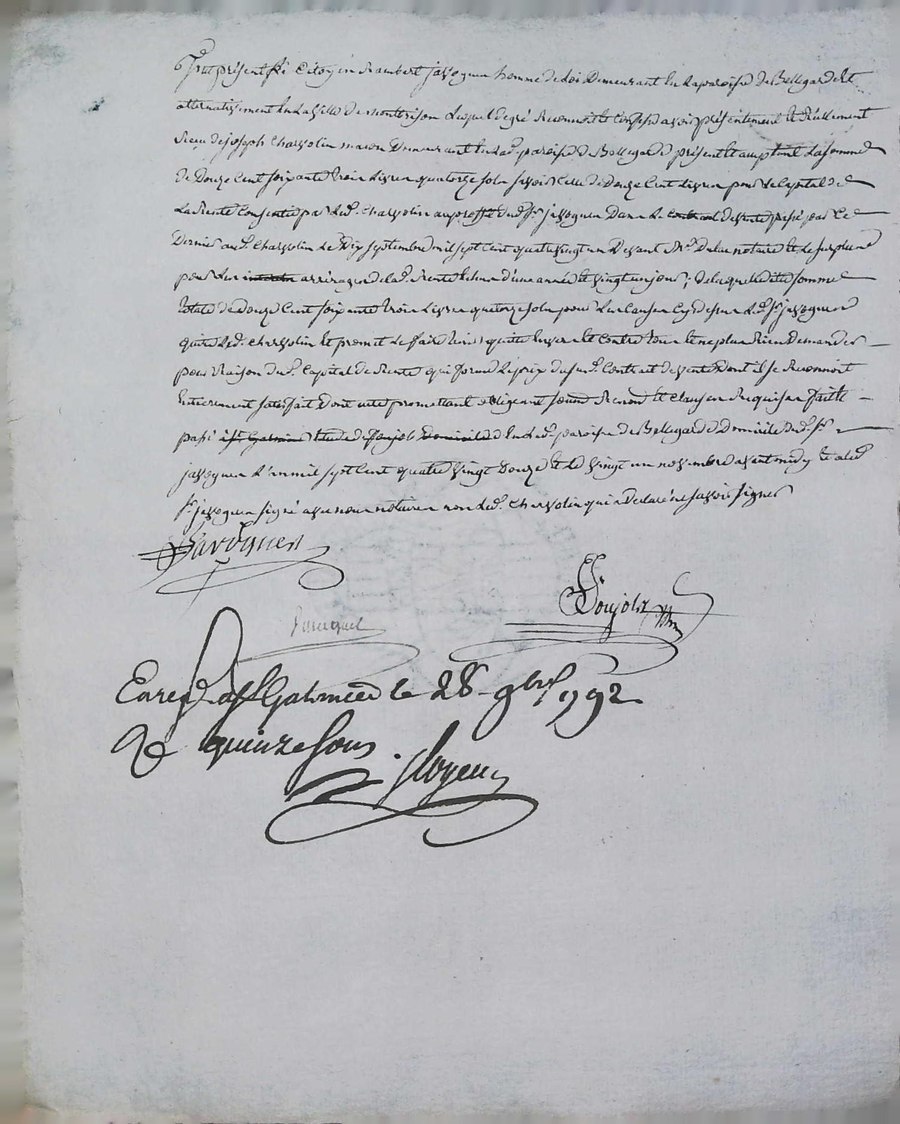 fut présent Sr Citoyen Rambert javoguen homme de loi demeurant en la paroisse de Bellegarde et
alternativement en la ville de montbrison Lequel de gré Reconnoit et Confesse avoir présentement et Réellement
Receu de joseph Chassolin macon demeurant en lad. paroisse de Bellegarde présent et acceptant La somme
de Douze Cent soixante trois Livres quatorze sols savoir Celle de Douze Cent Livres pour le Capital de
La Rente Consentie par led. Chassolin au proffit dud. Sr javoguen dans le contrat de vente passé par Ce
Dernier aud. Chassolin le dix septembre mil sept Cent quatre vingt un devant Me notaire et le surplus
pour les arrérages de lad. Rente d'une année et vingt un jours; de laquelle dite somme
totale de Douze Cent soixante trois Livres quatorze sols pour les Causes Cydessus led. Sr javoguen
quite led. Chassolin et promet le faire tenir quitte envers et Contre tous et ne plus Rien Demander
pour Raison dud. Capital de Rente qui forme le prix dusd. Contrat de vente dont il se Reconnoit
Entierement satisfait dont acte promettant obligeant soumis Renond et Clauses Requises fait et
passé en lad. paroisse de Bellegarde Domicile dud. Sr
javoguen L'an mil sept Cent quatre vingt douze et le vingt un novembre avant midy et a led.
Sr javoguen signé avec nous notaire non led. Chassolin qui a Declaré ne savoir signer
Javoguen
Soujolx
Enreg. a St Galmier le 28 9bre 1792
R quinze sous.